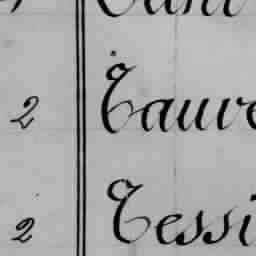 2 Tauve
2 Tessi